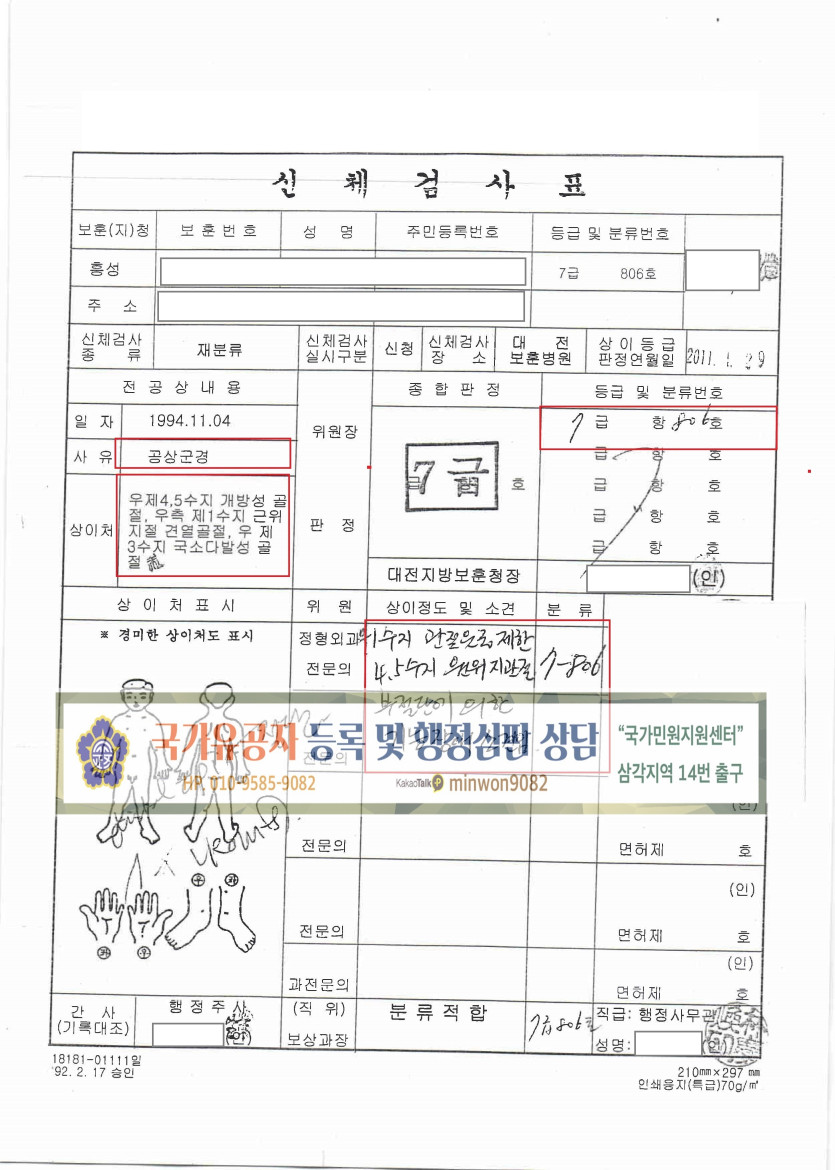 신 체 검 사 표
보훈(지)청 보 훈 번 호 성 명 주민등록번호 등급 및 분류번호
홍성 7급 806호
주 소
신체검사 종 류 재분류 신체검사 실시구분 신청 신체검사 장 소 대 전 보훈병원 상 이 등 급 판정연월일 2011. 1. 29
전 공 상 내 용 종 합 판 정 등급 및 분류번호
일 자 1994.11.04 위원장 7 급 항 806호
사 유 공상군경 급 항 호
7급 호
급 항 호
상이처 우제4,5수지 개방성 골
절, 우측 제1수지 근위
지절 견열골절, 우 제
3수지 국소다발성 골
절
판 정 급 항 호
급 항 호
대전지방보훈청장 (인)
상 이 처 표 시 위 원 상이정도 및 소견 분 류
※ 경미한 상이처도 표시
정형외과 전문의
1수지 관절운동제한
4.5수지 원위지관절 7-806
부절단에 의한
국가유공자 등록 및 행정심판 상담
HP 010-9585-9082
KakaoTalk minwon9082
"국가민원지원센터"
삼각지역 14번 출구
전문의
(인)
전문의 면허제 호
(인)
전문의 면허제 호
(인)
과전문의 면허제 호
우 좌
좌 우
간 사 (기록대조) 행 정 주 사 (인)
(직 위) 보상과장 분 류 적 합 7급806호
직급: 행정사무관
성명: (인)
18181-01111일
'92. 2. 17 승인
210㎜×297 ㎜
인쇄용지(특급)70g/㎡